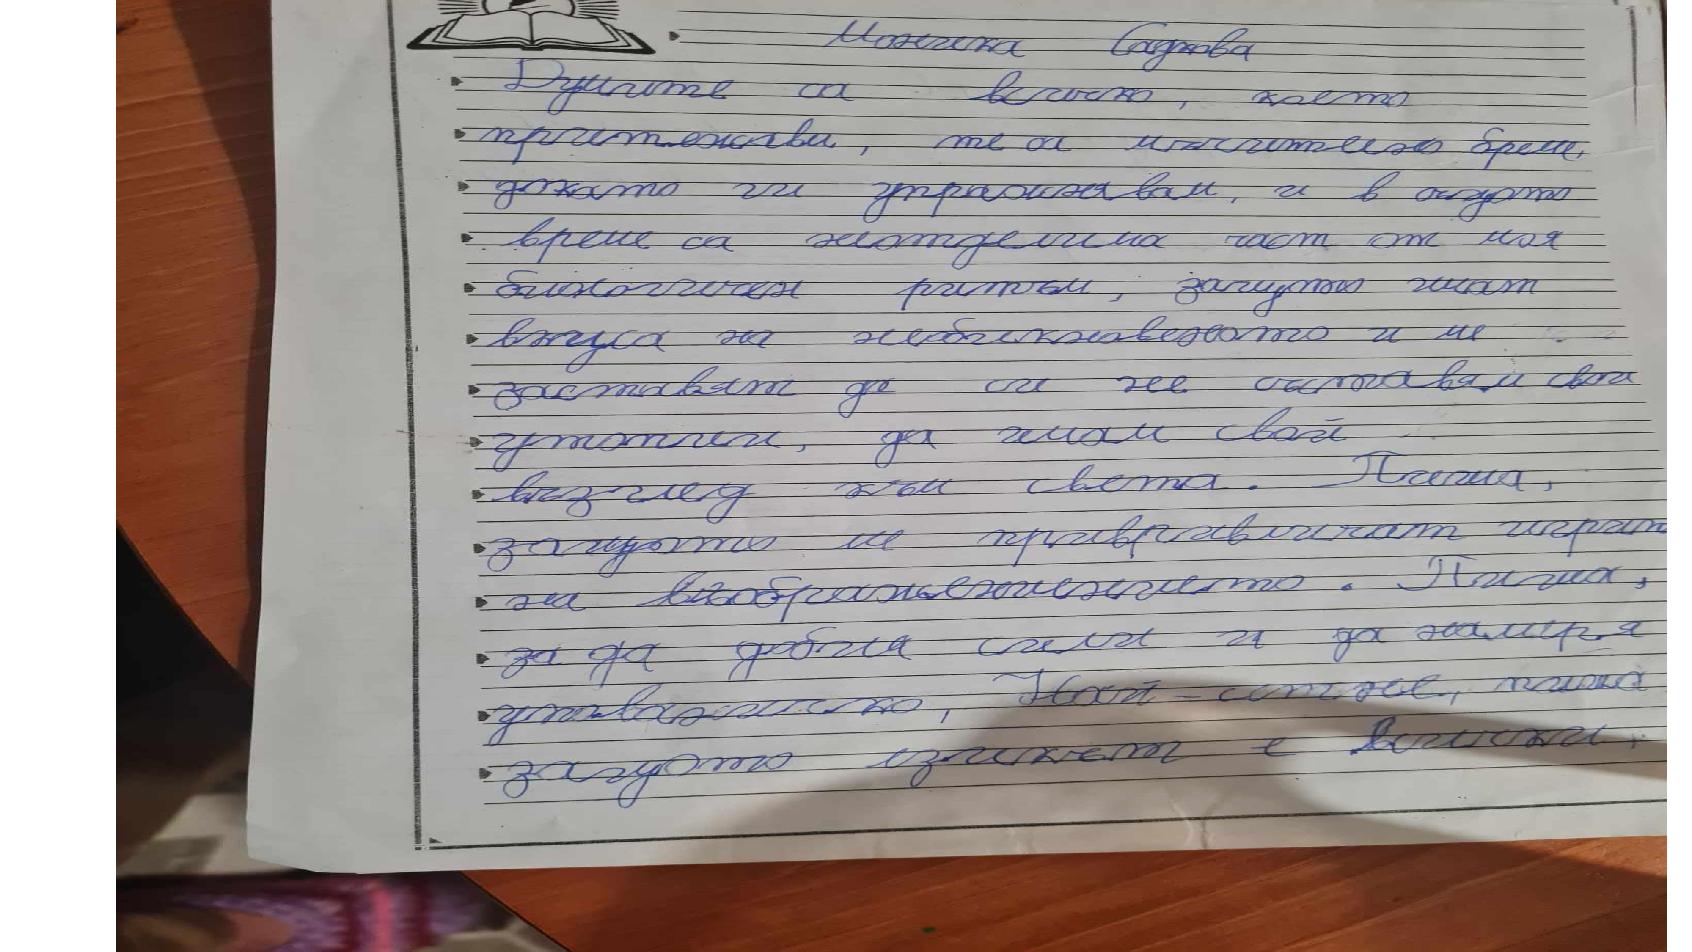 Моника Садкова
Думите са всичко, което
притежавам, те са мълчително време,
докато ги упражнявам, и в същото
време са неотделима част от моя
биологичен ритъм, защото имат
вкуса на необикновеното и ме
заставят да си не оставям свои
утопии, да имам свой
възглед към света. Пиша,
защото ме привличат игрите
на въображението. Пиша,
за да добия сили и да намеря
упование, Най-сетне, пиша
защото езикът е всички.